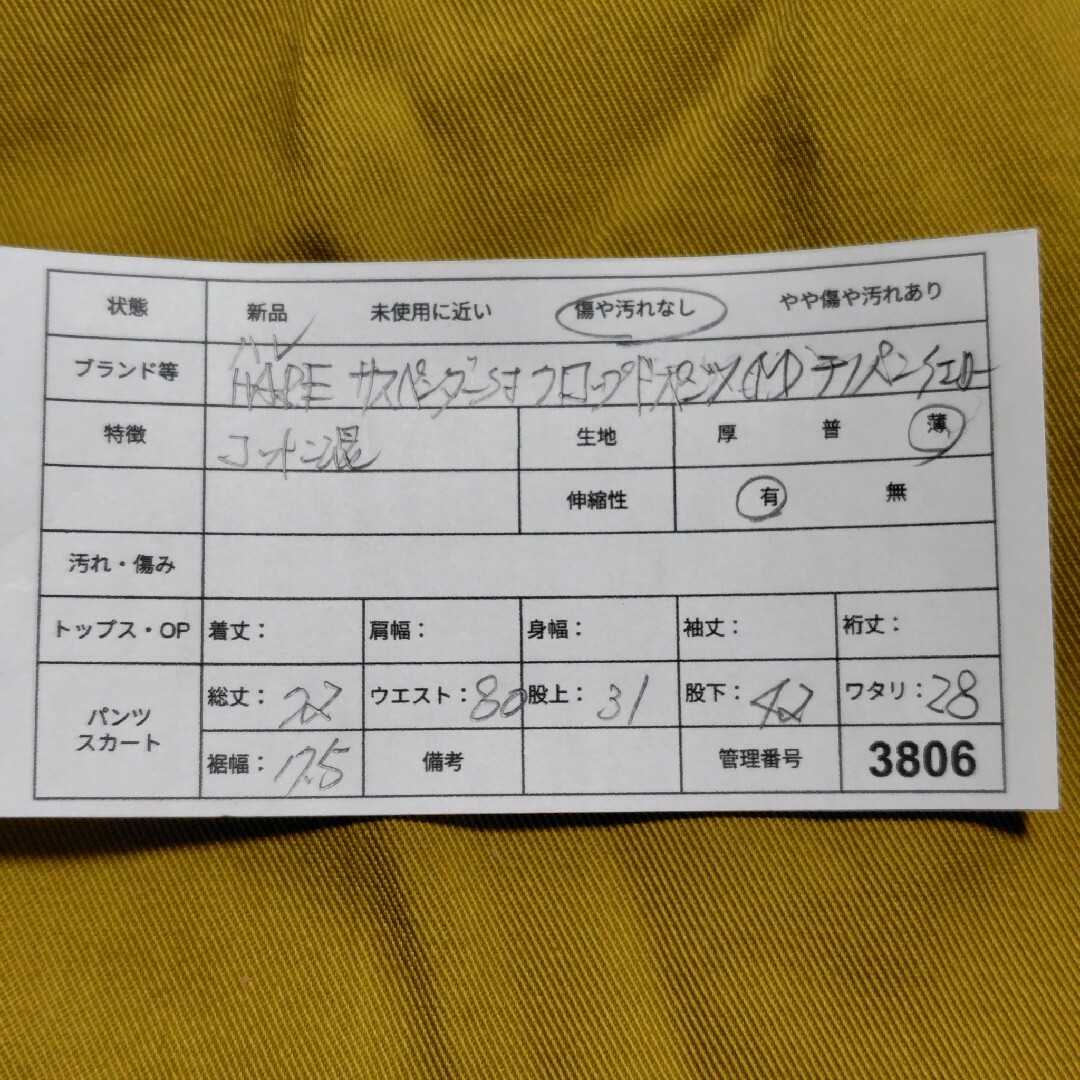 状態 新品 未使用に近い 傷や汚れなし やや傷や汚れあり
ハレ
ブランド等 HARE サスペンダー付 クロップドパンツ (M) チノパン イエロー
特徴 コットン混 生地 厚 普 薄
伸縮性 有 無
汚れ・傷み
トップス・OP 着丈： 肩幅： 身幅： 袖丈： 裄丈：
パンツ スカート 総丈： ウエスト：80 股上：31 股下：42 ワタリ：28
裾幅：17.5 備考 管理番号 3806